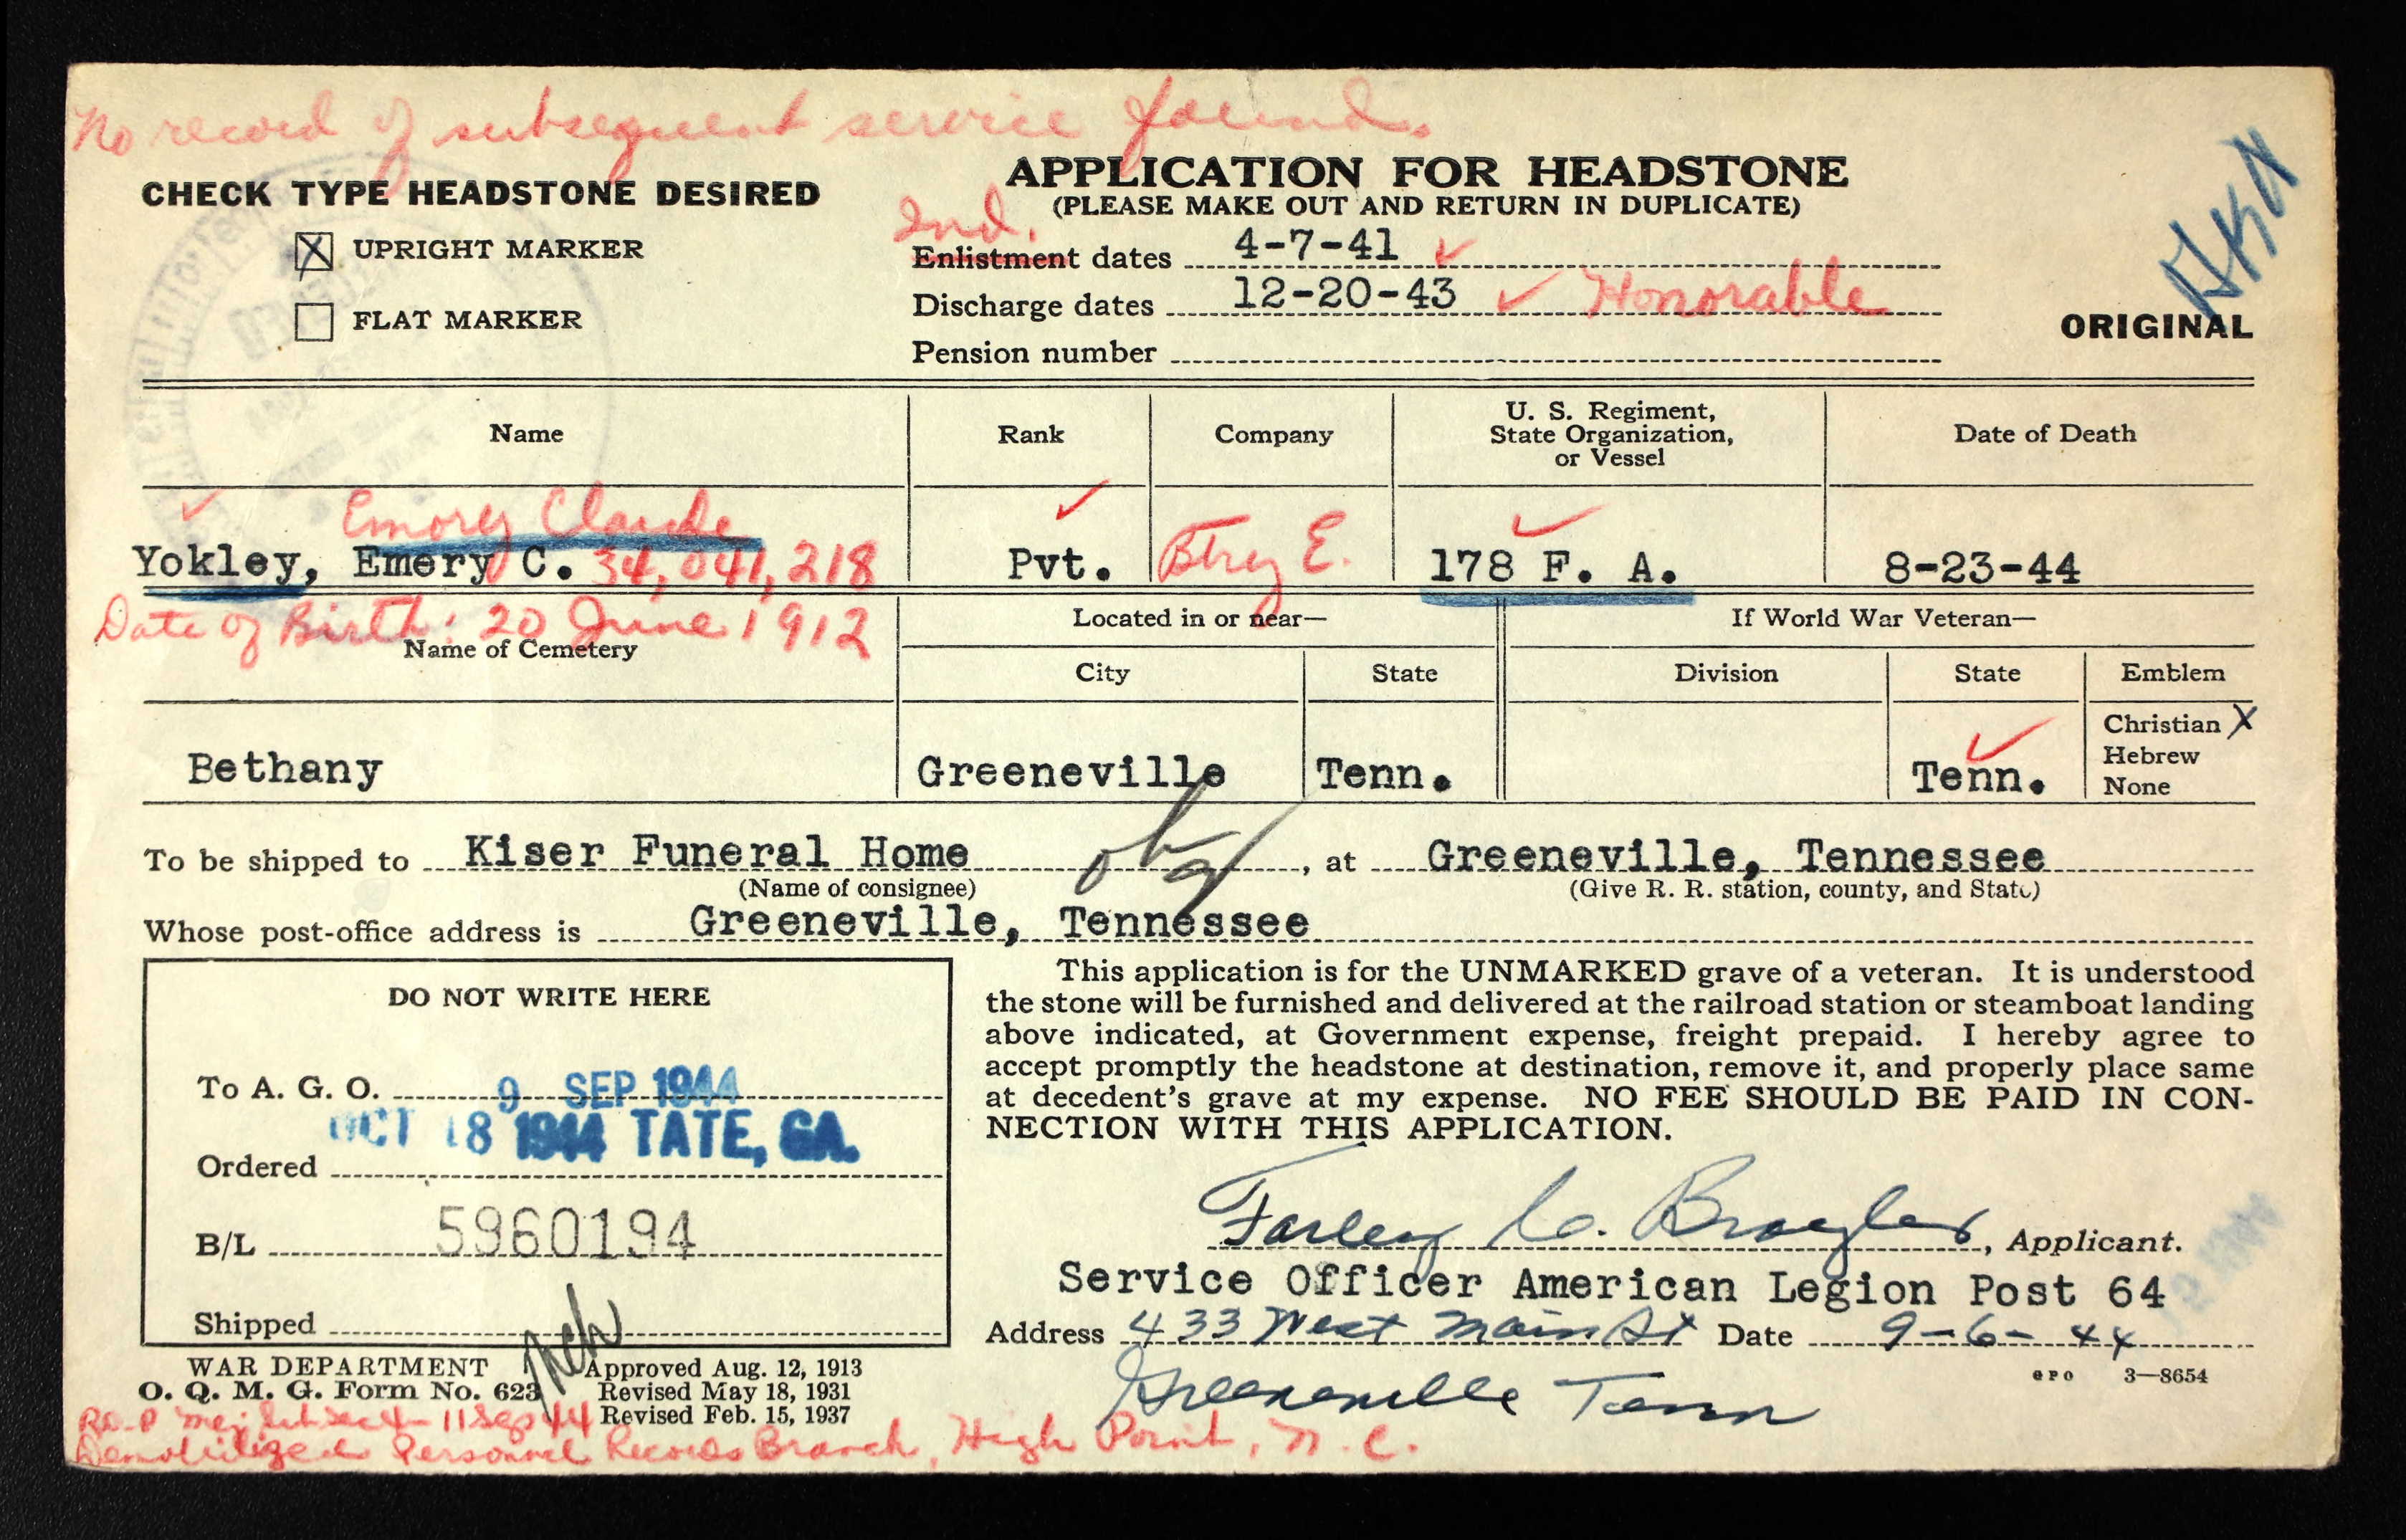 No record of subsequent service found.
CHECK TYPE HEADSTONE DESIRED
UPRIGHT MARKER
FLAT MARKER
APPLICATION FOR HEADSTONE
(PLEASE MAKE OUT AND RETURN IN DUPLICATE)
Ind.
Enlistment dates 4-7-41
Discharge dates 12-20-43 Honorable
Pension number
ORIGINAL
Name Rank Company U. S. Regiment, State Organization, or Vessel Date of Death
Emory Claude
Yokley, Emery C. 34,041,218 Pvt. Btry E. 178 F. A. 8-23-44
Date of Birth: 20 June 1912
Name of Cemetery Located in or near— If World War Veteran—
City State Division State Emblem
Bethany Greeneville Tenn. Tenn.
Christian X
Hebrew
None
To be shipped to Kiser Funeral Home, at Greeneville, Tennessee
(Name of consignee) (Give R. R. station, county, and State)
Whose post-office address is Greeneville, Tennessee
DO NOT WRITE HERE
To A. G. O. 9 SEP 1944
OCT 18 1944 TATE, GA.
Ordered
B/L 5960194
Shipped
This application is for the UNMARKED grave of a veteran. It is understood
the stone will be furnished and delivered at the railroad station or steamboat landing
above indicated, at Government expense, freight prepaid. I hereby agree to
accept promptly the headstone at destination, remove it, and properly place same
at decedent's grave at my expense. NO FEE SHOULD BE PAID IN CON-
NECTION WITH THIS APPLICATION.
Farley C., Applicant.
Service Officer American Legion Post 64
Address 433 West Main St Date 9-6-44
Greeneville Tenn
WAR DEPARTMENT
O. Q. M. G. Form No. 623
Approved Aug. 12, 1913
Revised May 18, 1931
Revised Feb. 15, 1937
GPO 3—8654
11 Sep 44
Demobilized Personnel Records Branch, High Point, N. C.